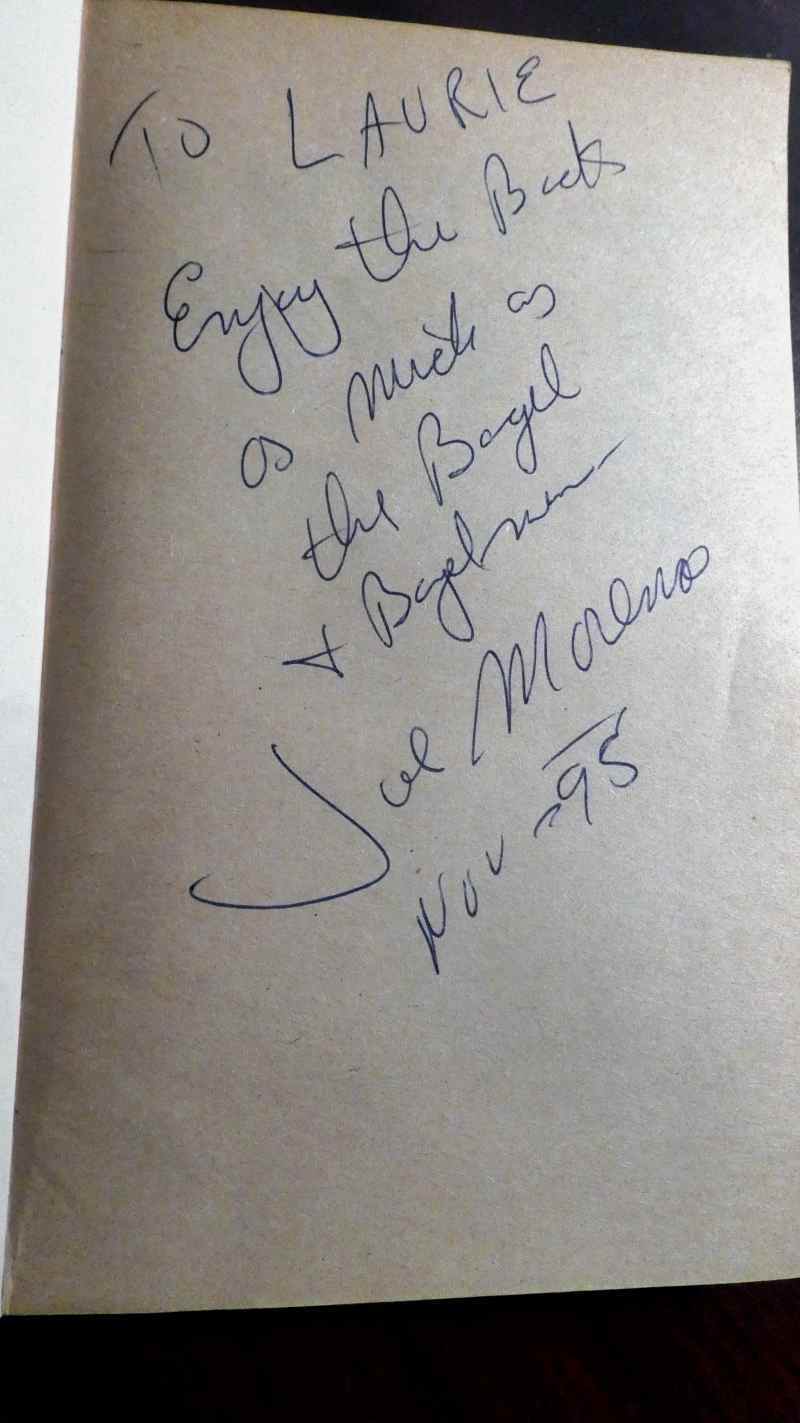 TO LAURIE
Enjoy the Book
as much as
the Bagel
& Bagelmen
Joe Moreno
Nov -95